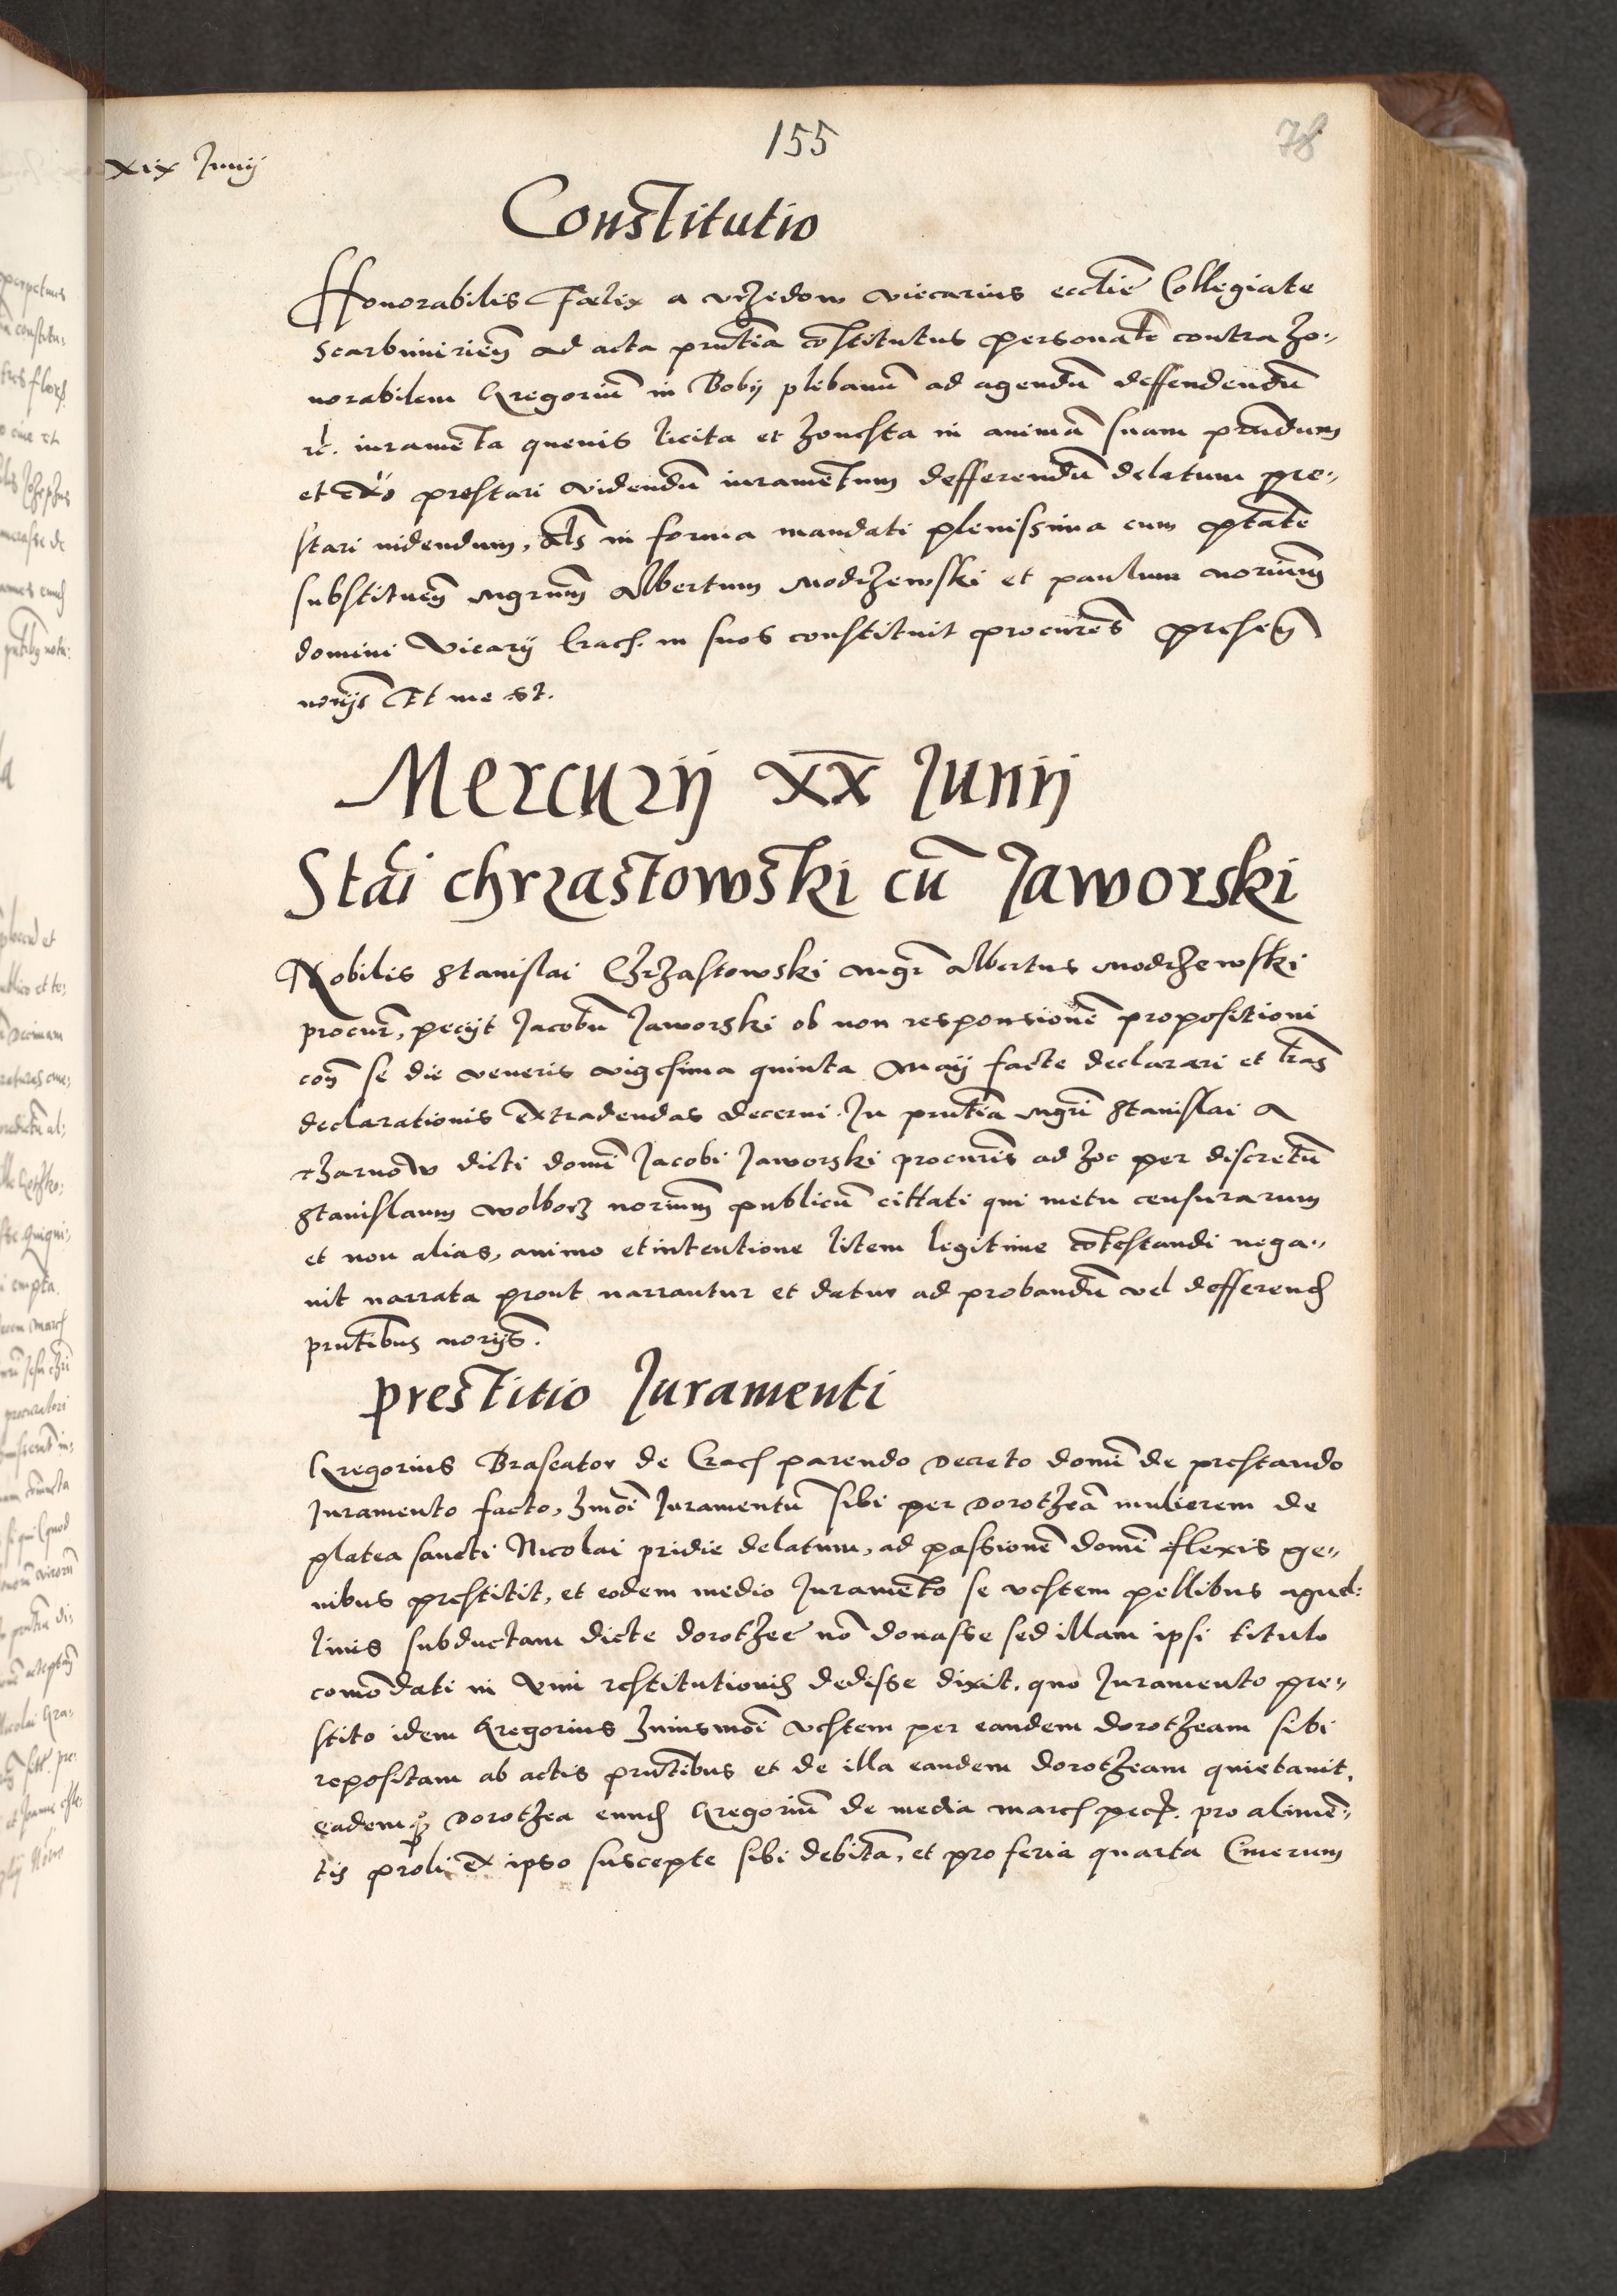 155
78
xix Junij
Constitutio
Honorabilis Fœlix a vrzedow viccarius eccl̄ie Collegiate
Scarbimirień ad acta pr̄ntia cōstitutus personal̄r contra ho„
norabilem Gregoriū in Bobij plebanū ad agendū deffendendū
rć. iuramēta quevis licita et honesta in animā suam prādum
et ex̄o prestari videndū iuramentum defferendū delatum pre„
stari uidendum, al̄s in forma mandati plenissima cum p̄tāte
substitueñ mgr̄um Albertum modrzewski et paulum norium̄
domini vicarij Crach. in suos constituit procur̄es preseñ
norijs Et me st.
Mercurij xx Junij
Stāi chrzastowski cū Jaworski
Nobilis Stanislai Chrzastowski mgr̄ Albertus modrzewski
procur̄, pecijt Jacobū Jaworski ob non responsionē propositioni
coñ se die veneris vigesima quinta Maij facte declarari et l̄ras
declarationis extradendas decerni. In pr̄ntia mgr̄i Stanislai a
czarnow dicti domī Jacobi Jaworski procur̄is ad hoc per discretū
Stanislaum wolborz norium̄ publicū cittati qui metu censurarum
et non alias, animo et intentione litem legitime cōtestandi nega„
uit narrata prout narrantur et datur ad probandū vel defferend
pr̄ntibus norijs.
prestitio Juramenti
Gregorius Braseator de Crach parendo decreto domī de prestando
Juramento facto, hmōi Juramentū sibi per dorotheā mulierem de
platea sancti Nicolai pridie delatum, ad passionē domī flexis ge„
nibus prestitit, et eodem medio Juramēto se vestem pellibus agnel:
linis subductam dicte dorothee nō donasse sed illam ipsi titulo
comōdati in vim restitutionis dedisse dixit. quo Juramento pre„
stito idem Gregorius huiusmōi vestem per eandem dorotheam sibi
repositam ab actis pr̄ntibus et de illa eandem dorotheam quietauit.
eadem dorothea eund Gregoriū de media march pec. pro alimē„
tis proli ex ipso suscepte sibi debitā, et pro feria quarta Cinerum